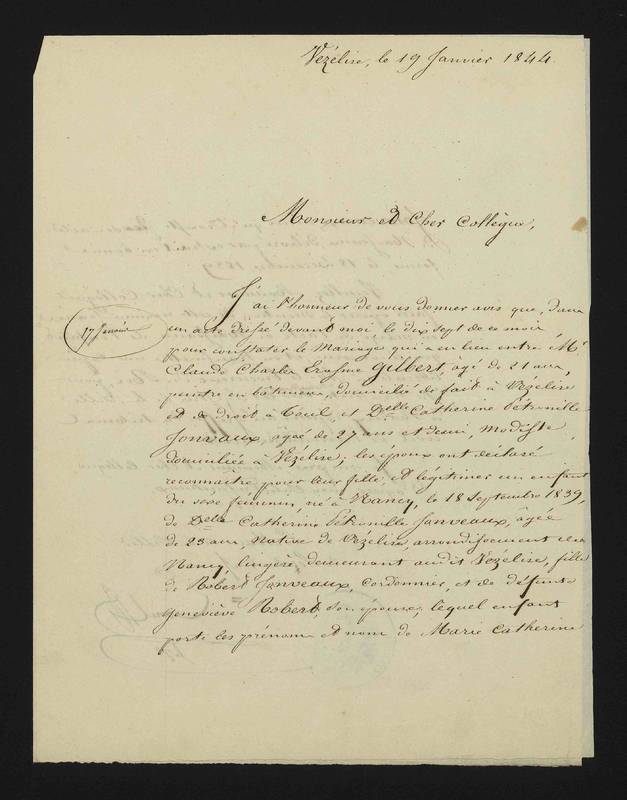 Vézélise, le 19 Janvier 1844.
Monsieur et Cher Collègue,
J'ai l'honneur de vous donner avis que, dans
17 Janvier
un acte dressé devant moi le dix sept de ce mois
pour constater le Mariage qui a eu lieu entre Mr
Claude Charles Erasme Gilbert, âgé de 21 ans,
peintre en bâtimens, domicilié de fait à Vézélise
et de droit à Toul, et Delle Catherine Pétronille
Janvaux, agée de 27 ans et demi, Modiste
domiciliée à Vézélise; les époux ont déclaré
reconnaitre pour leur fille, et légitimer un enfant
du sexe féminin, né à Nancy, le 18 Septembre 1839,
de Delle Catherine Pétronille Janveaux, âgée
de 23 ans, native de Vézélise, arrondissement de
Nancy, lingère, demeurant audit Vézélise, fille
de Robert Janveaux, Cordonnier, et de défunte
Geneviève Robert, son épouse; lequel enfant
porte les prénoms et nom de Marie Catherine